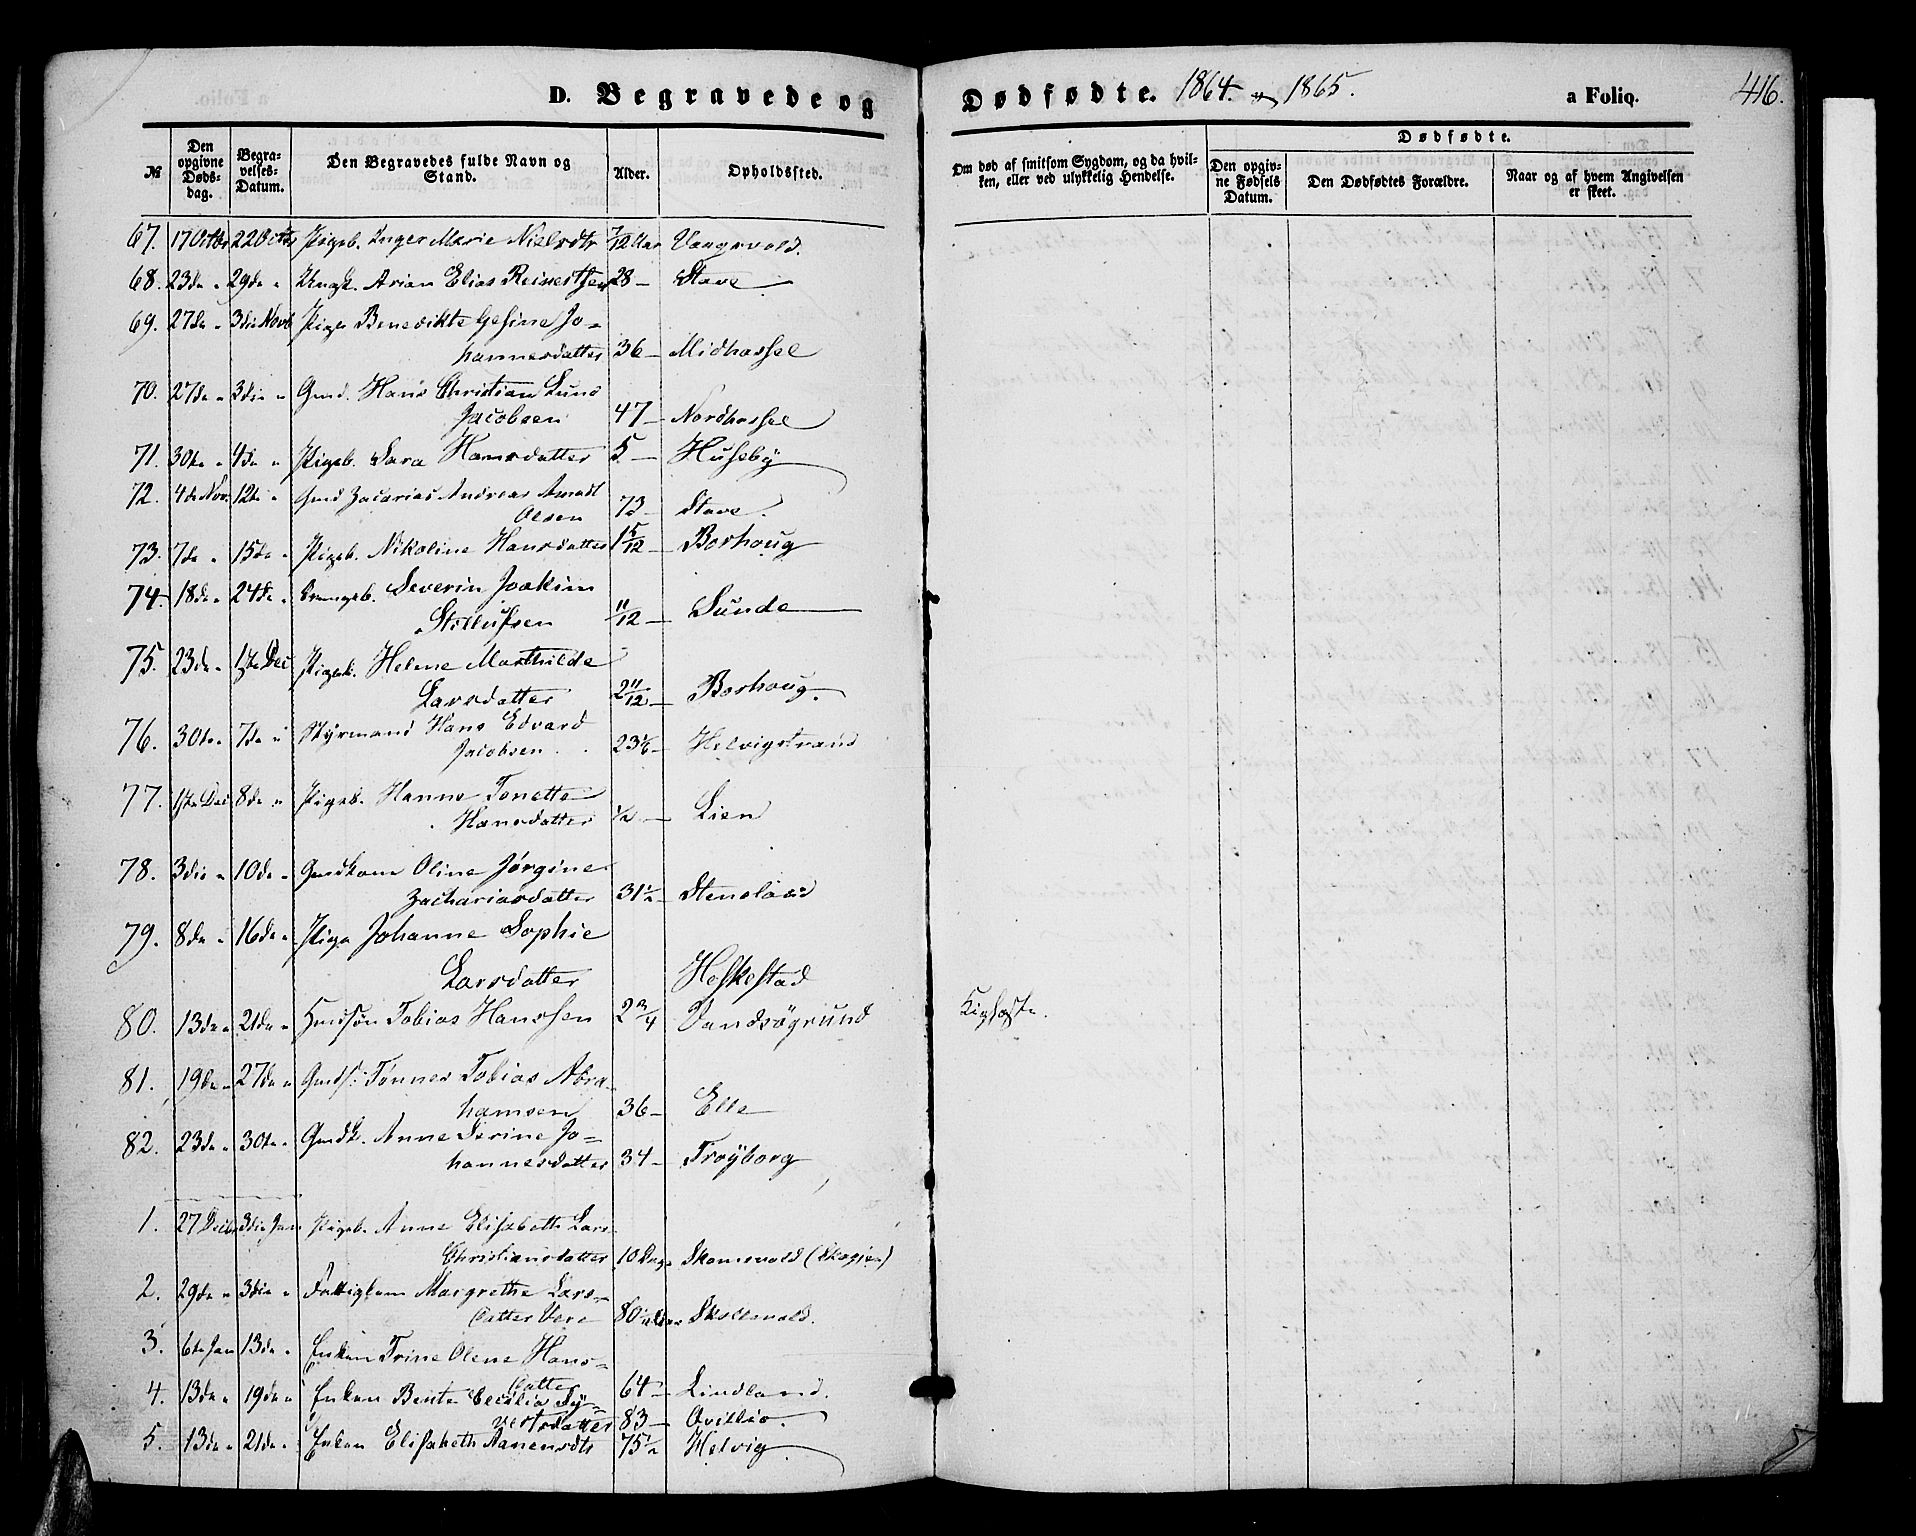 D. Begravede og Dødfødte. 1864. og 1865. a Folio. 416.
№
Den opgivne Dødsdag.
Begravelses-Datum.
Den Begravedes fulde Navn og Stand.
Alder.
Opholdssted.
Om død af smitsom Sygdom, og da hvilken, eller ved ulykkelig Hendelse.
Dødfødte.
Den opgivne Fødsels Datum.
Den Dødfødtes Forældre.
Naar og af hvem Angivelsen er skeet.
67. 17 Octbr 22 Octbr Pigeb. Inger Marie Nielsdtr 7/12 Aar Vangsvold.
68. 23de " 29de " Ungk. Arian Elias Reinertsen 28 – Stave
69. 27de " 3die Novb Pige Benedikte Gesine Jo=
hannesdatter 36 – Midhassel
70. 27de " 3die " Gmd. Hans Christian Lund
Jacobsen 47 – Nordhassel
71. 30te " 4de " Pigeb. Sara Hansdatter 5 – Huseby
72. 4de Nov. 12te " Gmd Zacarias Andreas Amadl
Olsen 73 – Stave.
73. 7de " 15de " Pigeb. Nikoline Hansdatter 1 5/12 – Borhoug
74. 18de " 24de " Drengeb. Severin Joakim
Stellufsen 11/12 – Sunde
75. 23de " 1ste Dec Pigeb. Helene Marthilde
Larsdatter 2 11/12 – Borhoug.
76. 30te " 7de " Styrmand Hans Edvard
Jacobsen 23 1/6 – Helvigstrand
77. 1ste Dec 8de " Pigeb. Hanne Tonette
Hansdatter 1/2 – Lien
78. 3die " 10de " Gmdkone Oline Jørgine
Zachariasdatter 31 1/2 – Stensland
79. 8de " 16de " Pige Johanne Sophie
Larsdatter Heskestad
80. 13de " 21de " Hmdsøn Tobias Hanssen 2 3/4 Vandsøgrund
81. 19de " 27de " Gmds: Tønnes Tobias Abra-
hamsen 36 – Elle
82. 23de " 30te " Gmdk. Anne Serine Jo=
hannesdatter 34 – Trøyborg
1. 27 Decbr 3die Jan Pigeb. Anne Elisabeth Lars
Christiansdatter 10 Dage Skomsvold (Skogjen)
2. 29de " 3die " Fattiglem Margrethe Lars=
datter Vere 80 Skollevold.
3. 6te Jan 13de " Enken Trine Olene Hans=
datter 64 – Lindland.
4. 13de " 19de " Enken Bente Cecilia Sy=
vertsdatter 83 – Ovellio.
5. 13de " 21de " Enken Elisabeth Aanensdtr 75 1/2 Helvig